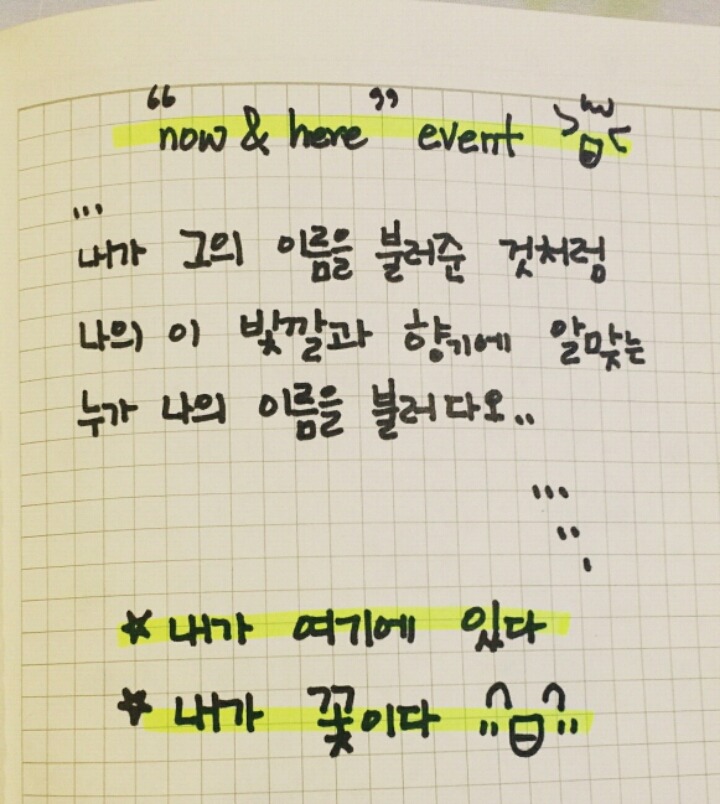 "now & here" event
...
내가 그의 이름을 불러준 것처럼
나의 이 빛깔과 향기에 알맞는
누가 나의 이름을 불러다오..
...
..
.
★ 내가 여기에 있다
★ 내가 꽃이다